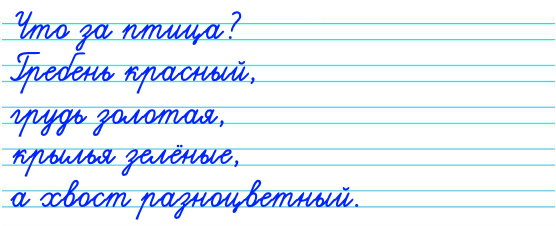 Что за птица?
Гребень красный,
грудь золотая,
крылья зелёные,
а хвост разноцветный.